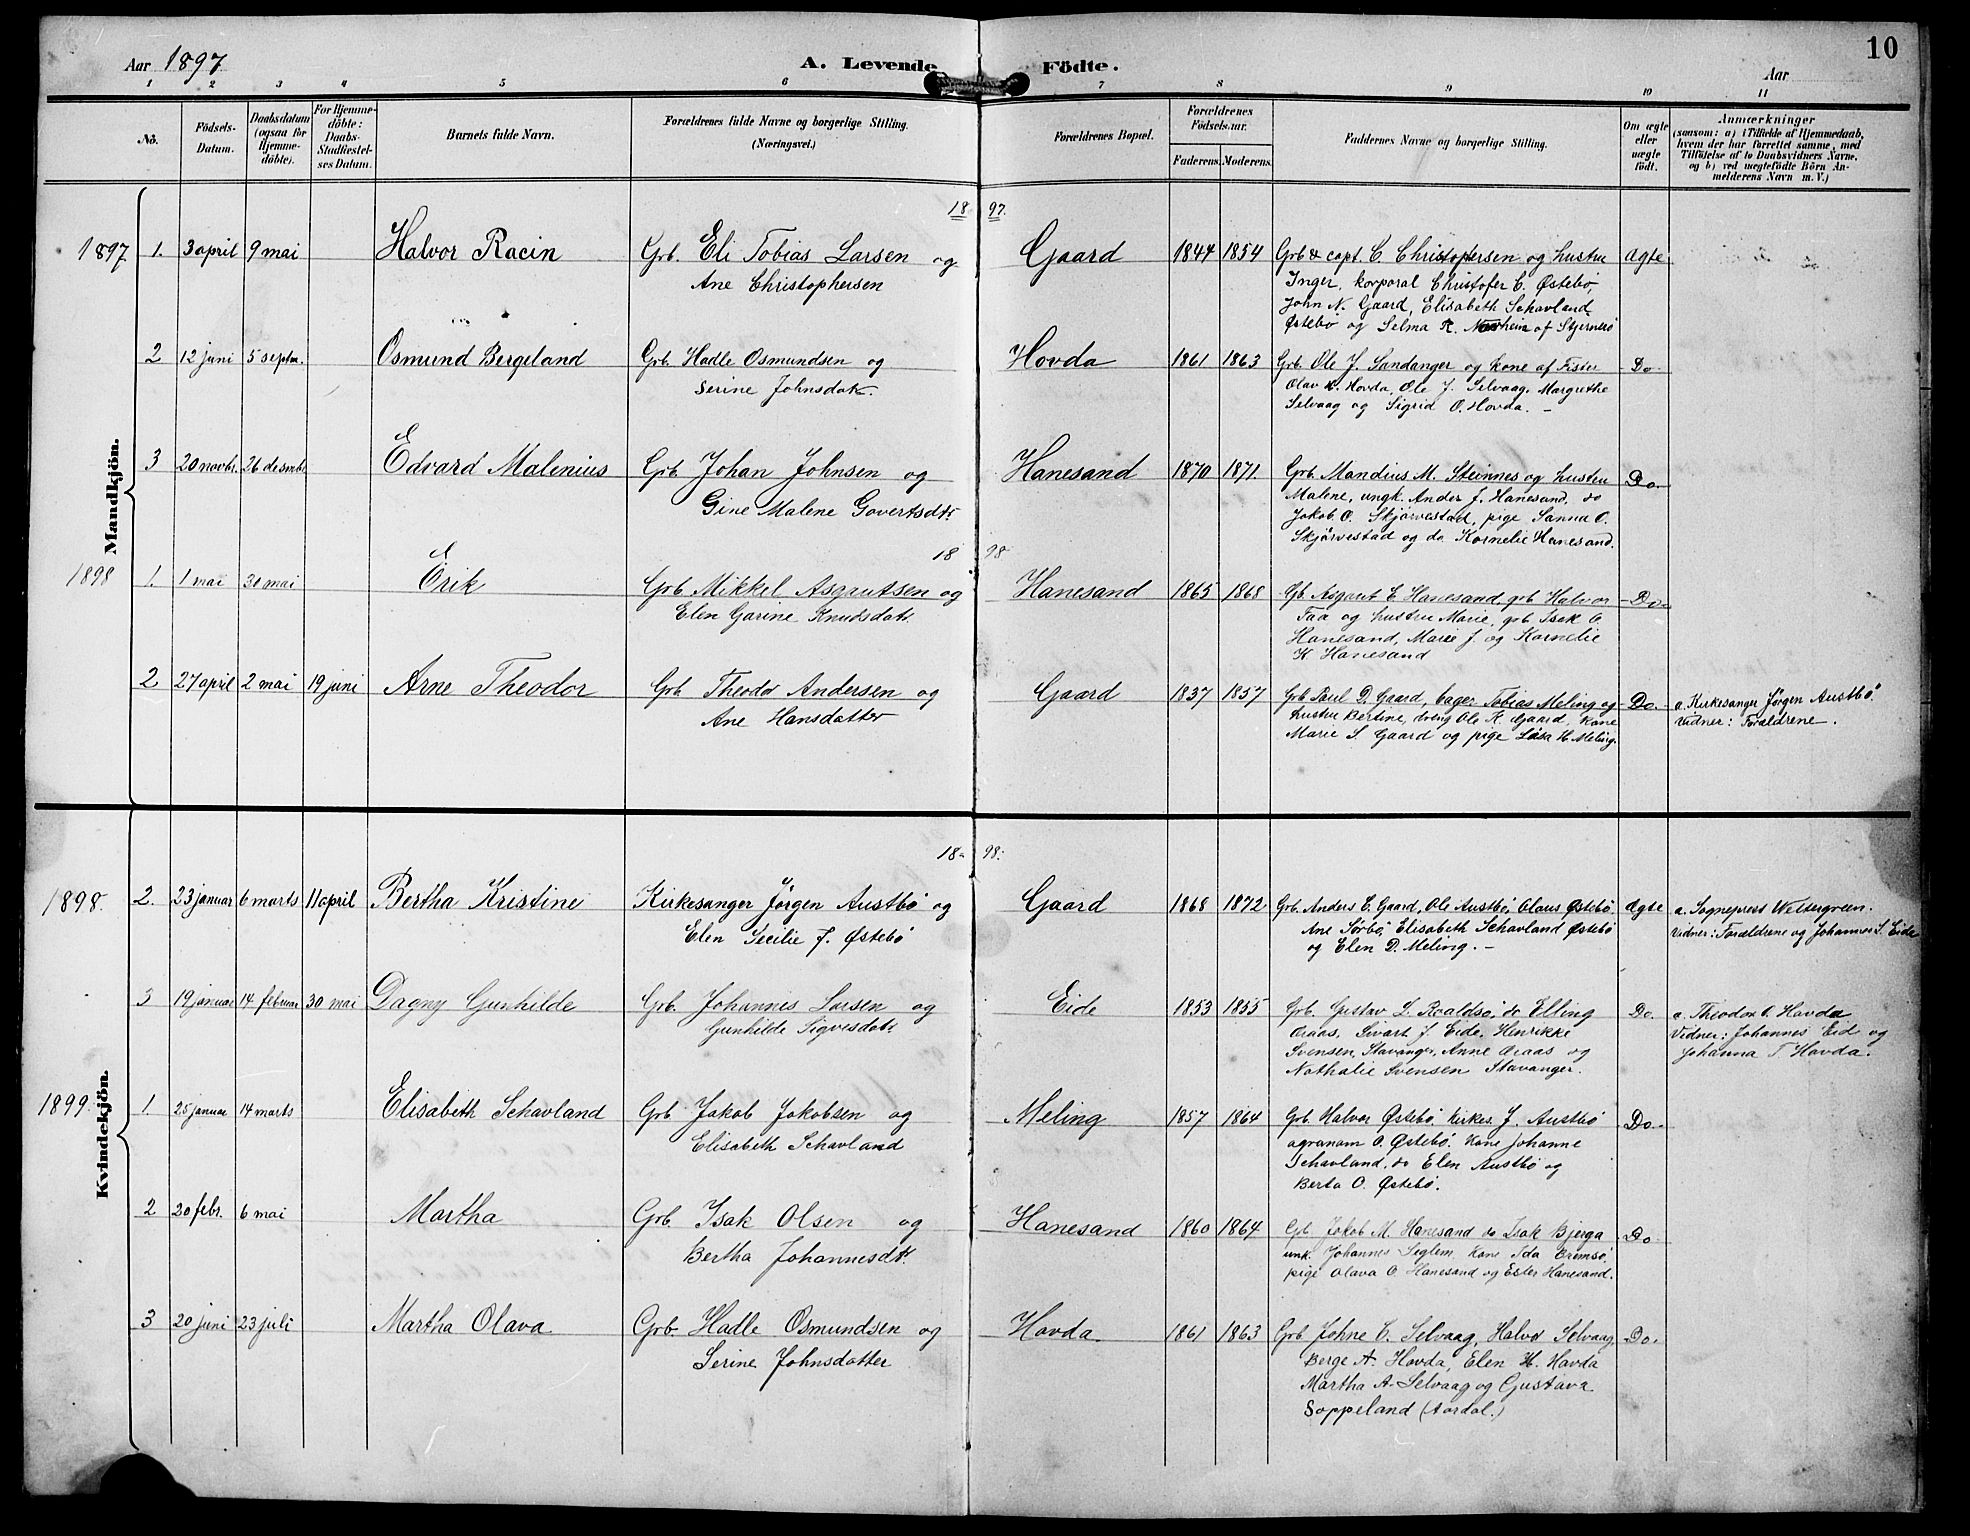 10
Aar 1897
A. Levende Födte.
Aar
1 2 3 4 5 6 7 8 9 10 11
No.
Födsels-Datum.
Daabsdatum (ogsaa for Hjemme-döbte).
For Hjemme-döbte: Daabs-Stadfæstel-ses Datum.
Barnets fulde Navn.
Forældrenes fulde Navne og borgerlige Stilling. (Næringsvei.)
Forældrenes Bopæl.
Forældrenes Födselsaar.
Faderens. Moderens.
Faddernes Navne og borgerlige Stilling.
Om ægte eller uægte födt.
Anmærkninger
(saasom: a) i Tilfælde af Hjemmedaab, hvem der har forrettet samme, med Tilföielse af to Daabsvidners Navne, og b) ved uægtefödte Börn An-melderens Navn m. V.)
Mandkjön.
18 97.
1897 1. 3 april 9 mai Halvor Racin Grb. Eli Tobias Larsen og Gaard 1844 1854 Grb & capt. C. Christophersen og hustru Ægte
Ane Christophersen Inger, korporal Christofer C. Østebø,
John N. Gaard, Elisabeth Schavland
Østebø og Selma R. Norheim af Stjernerø
2 12 juni 5 septm. Osmund Bergeland Grb. Hadle Osmundsen og Hovda 1861 1863 Grb. Ole J. Sandanger og Kone af Fister Do.
Serine Johnsdatr. Olav K. Hovda, Ole J. Selvaag, Margrethe
Selvaag og Sigrid O. Hovda. -
3 20 novbr. 26 desmbr Edvard Malenius Grb. Johan Johnsen og Hanesand 1870 1871. Grb. Mandius M. Steinnes og hustru Do.
Gine Malene Govertsdtr. Malene, ungk. Ander J. Hanesand, do
Jakob O. Skjørvestad, pige Sanna O.
Skjørvestad og do Kornelie Hanesand.
18 98
1898 1. 1 mai 30 mai Erik Grb. Mikkel Asgautsen og Hanesand 1865 1868 Gb. Asgaut E. Hanesand, grb Halvor Do
Elen Garine Knudsdatr. Faa og hustru Marie, grb Isak O.
Hanesand, Marie J. og Kornelie
K. Hanesand
2 27 april 2 mai 19 juni Arne Theodor Grb. Theodor Andersen og Gaard 1837 1857 Grb Paul D. Gaard, bager Tobias Meling og Do. a. Kirkesanger Jørgen Austbø
Ane Hansdatter hustru Bertine, dreng Ole K. Gaard, Kone Vidner: Forældrene.
Marie S. Gaard og pige Lisa H. Meling.
Kvindekjön.
18 98.
1898. 2. 23 januar 6 marts 11 april Bertha Kristine Kirkesanger Jørgen Austbø og Gaard 1868 1872 Grb. Anders E. Gaard, Ole Austbø, Olaus Østebø, Ægte a. Sogneprest Westergreen.
Elen Cecilie J. Østebø Ane Sørbø, Elisabeth Schavland Østebø Vidner: Forældrene og Johannes L. Eide
og Elen D. Meling. -
3 19 januar 14 februar 30 mai Dagny Gunhilde Grb. Johannes Larsen og Eide 1853 1855 Grb. Gustav L. Roaldsø, do Elling Do. a. Theodor O. Hovda
Gunhilde Sigvesdatr. Araas, Sivart J. Eide, Henrikke Vidner: Johannes Eid og
Svensen, Stavanger, Anne Araas og Johanna T. Hovda.
Nathalie Svensen Stavanger.
1899. 1 25 januar 14 marts Elisabeth Schavland Grb. Jakob Jakobsen og Meling 1857 1864 Grb. Halvor Østebø, Kirkes. J. Austbø Do.
Elisabeth Schavland agranam O. Østebø. Kone Johanne
Schavland, do Elen Austbø og
Berta O. Østebø.
2 20 febr. 6 mai Martha Grb. Isak Olsen og Hanesand 1860 1864 Gb. Jakob M. Hanesand do Isak Bjerga Do
Bertha Johannesdtr. unk. Johannes Seglem, Kone Ida Bremsø,
pige Olava O. Hanesand og Ester Hanesand.
3 20 juni 23 juli Martha Olava Grb. Hadle Osmundsen og Hovda 1861 1863 Grb Johne E. Selvaag, Halvor Selvaag, Do.
Serine Johnsdatter Berge A. Hovda, Elen H. Hovda
Martha A. Selvaag og Gustava
Soppeland (Aardal.)